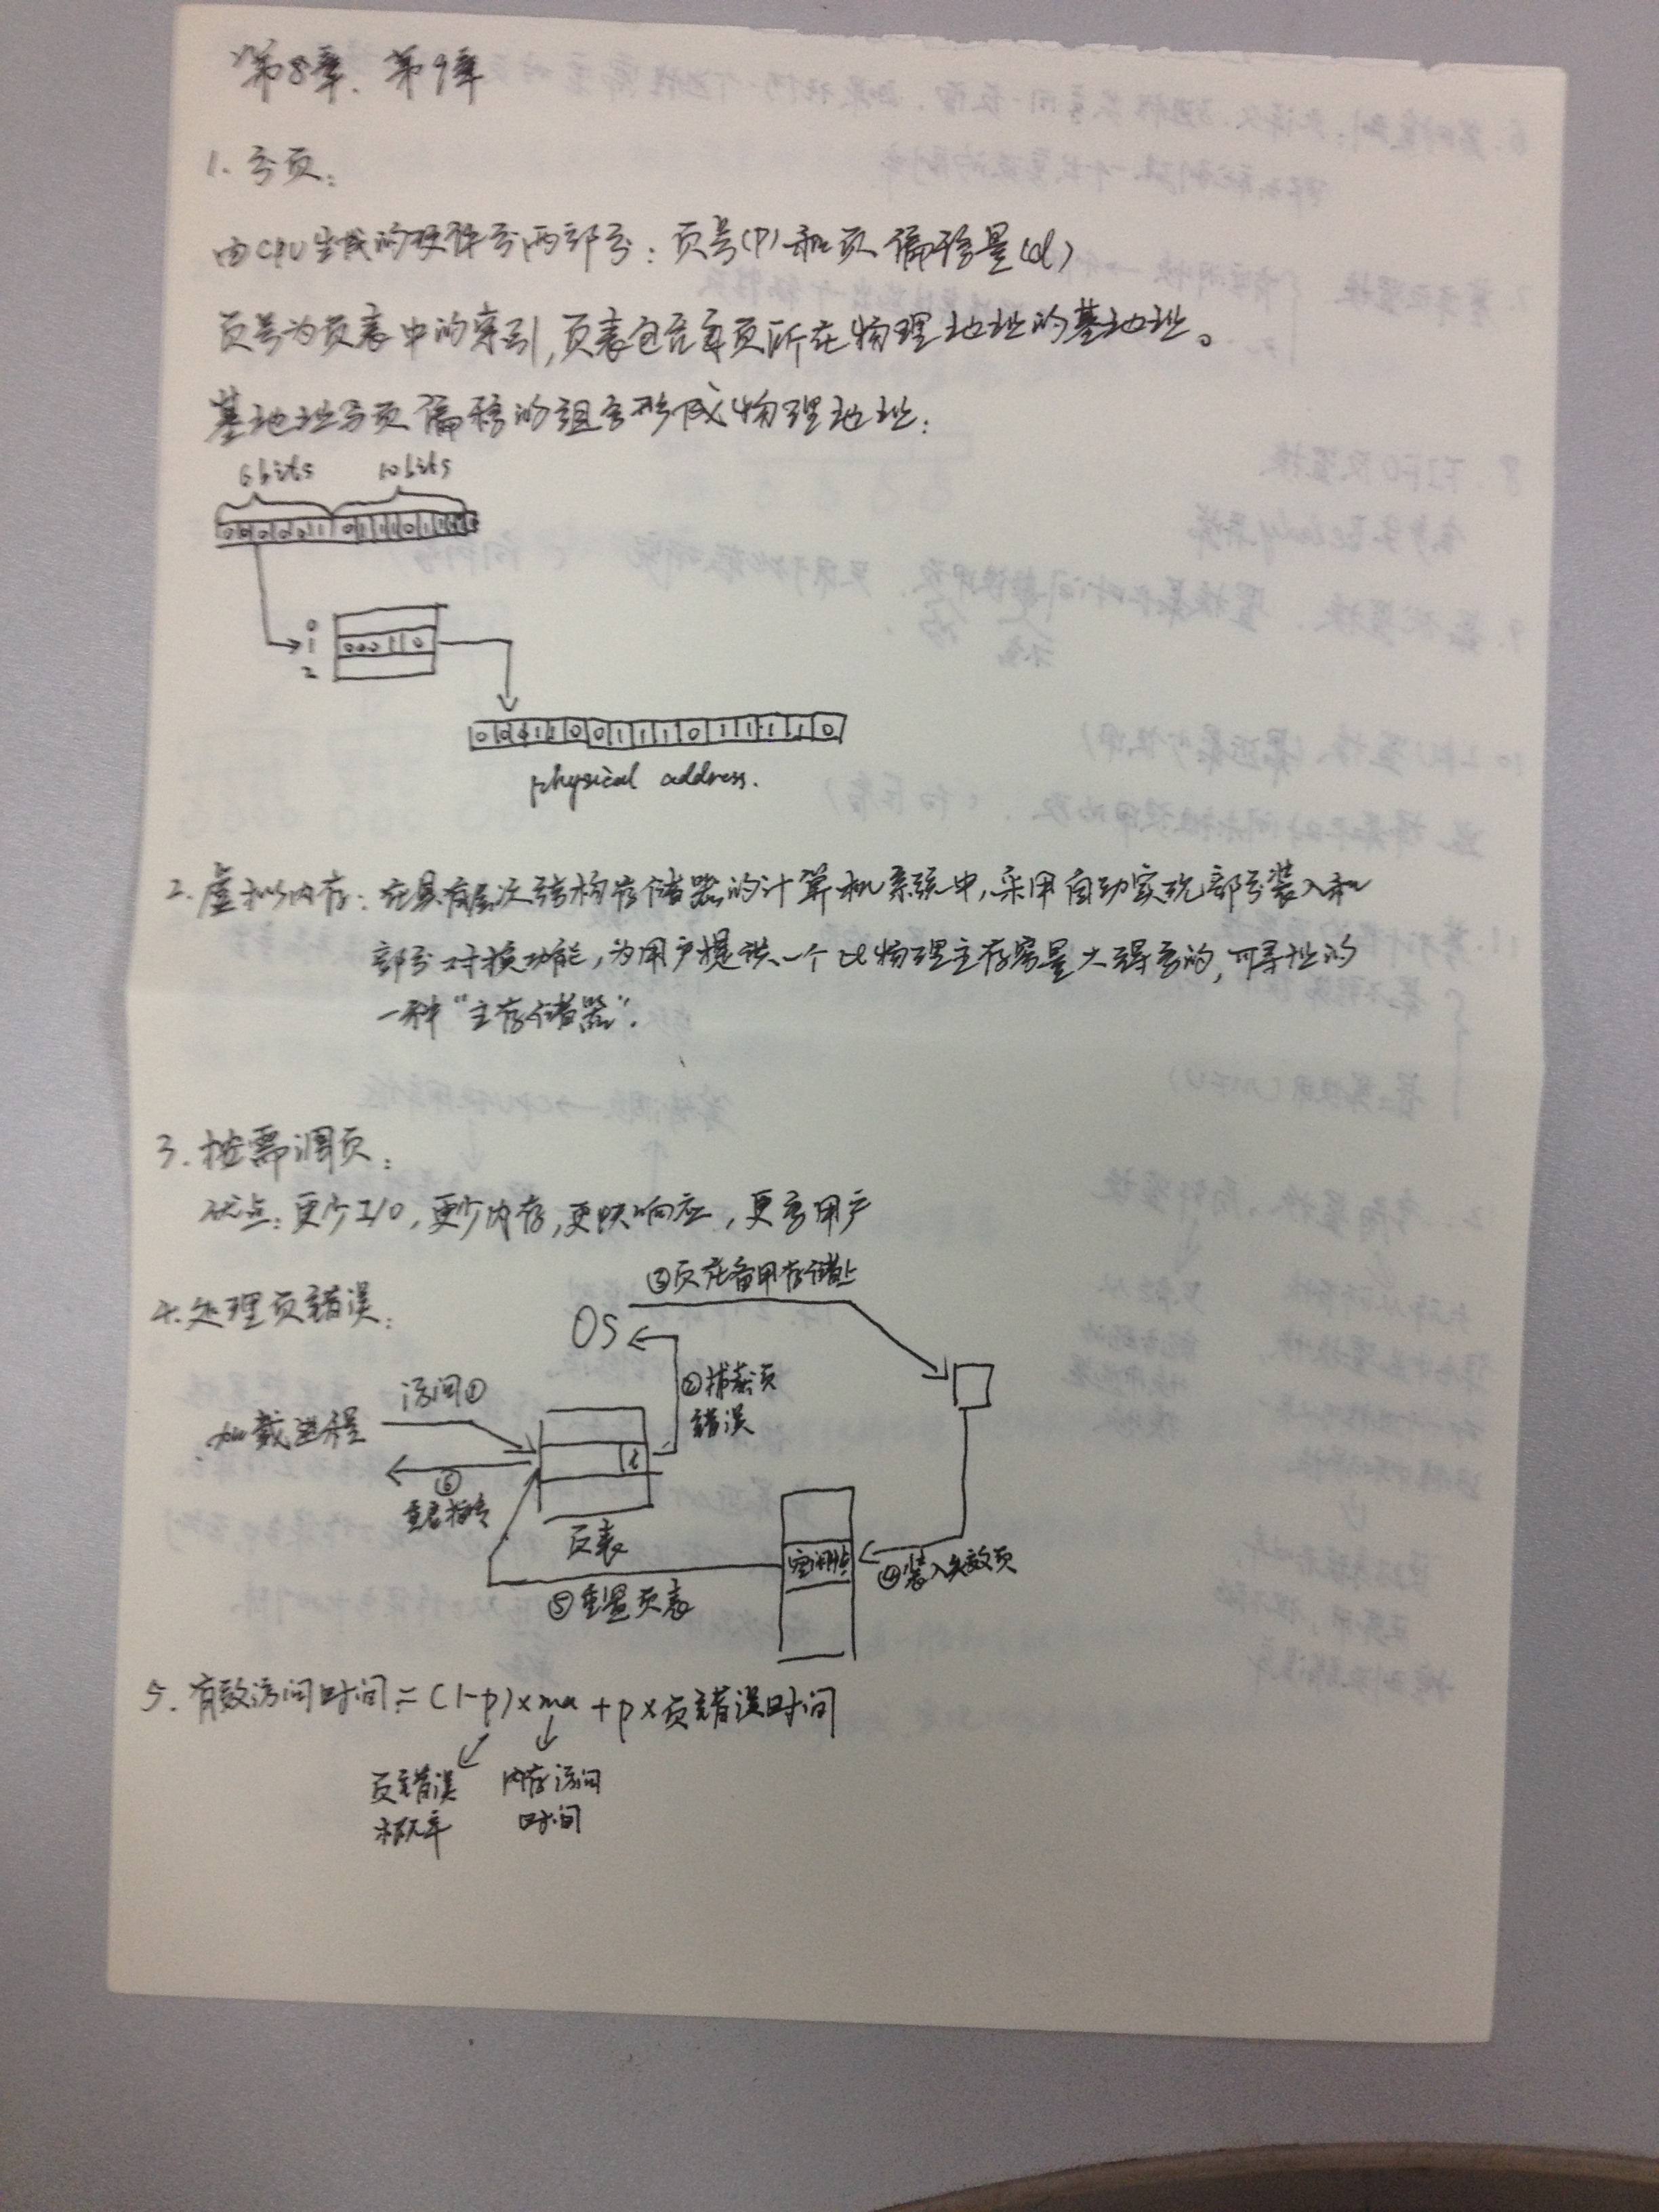 第8章、第9章
1. 分页:
由CPU生成的硬件分两部分: 页号(P)和页偏移量(d)
页号为页表中的索引,页表包含每页所在物理地址的基地址。
基地址与页偏移的组合形成物理地址:
6bits 10bits
0
1 000110
2
physical address.
2. 虚拟内存: 在具有层次结构存储器的计算机系统中,采用自动实现部分装入和
部分对换功能,为用户提供一个比物理主存容量大得多的,可寻址的
一种“主存储器”.
3. 按需调页:
优点: 更少I/O, 更少内存, 更快响应, 更多用户
4. 处理页错误:
③页在备用存储上
OS
②捕获页
错误
访问①
加载进程
i
⑥
重启指令
页表
④装入失效页
⑤重置页表
5. 有效访问时间 = (1-p)×ma + p×页错误时间
页错误 内存访问
概率 时间